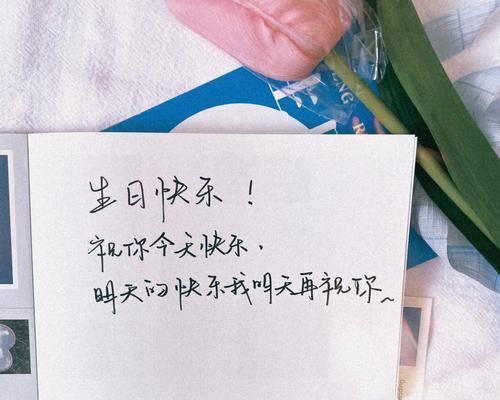 生日快乐！
祝你今天快乐，
明天的快乐我明天再祝你~